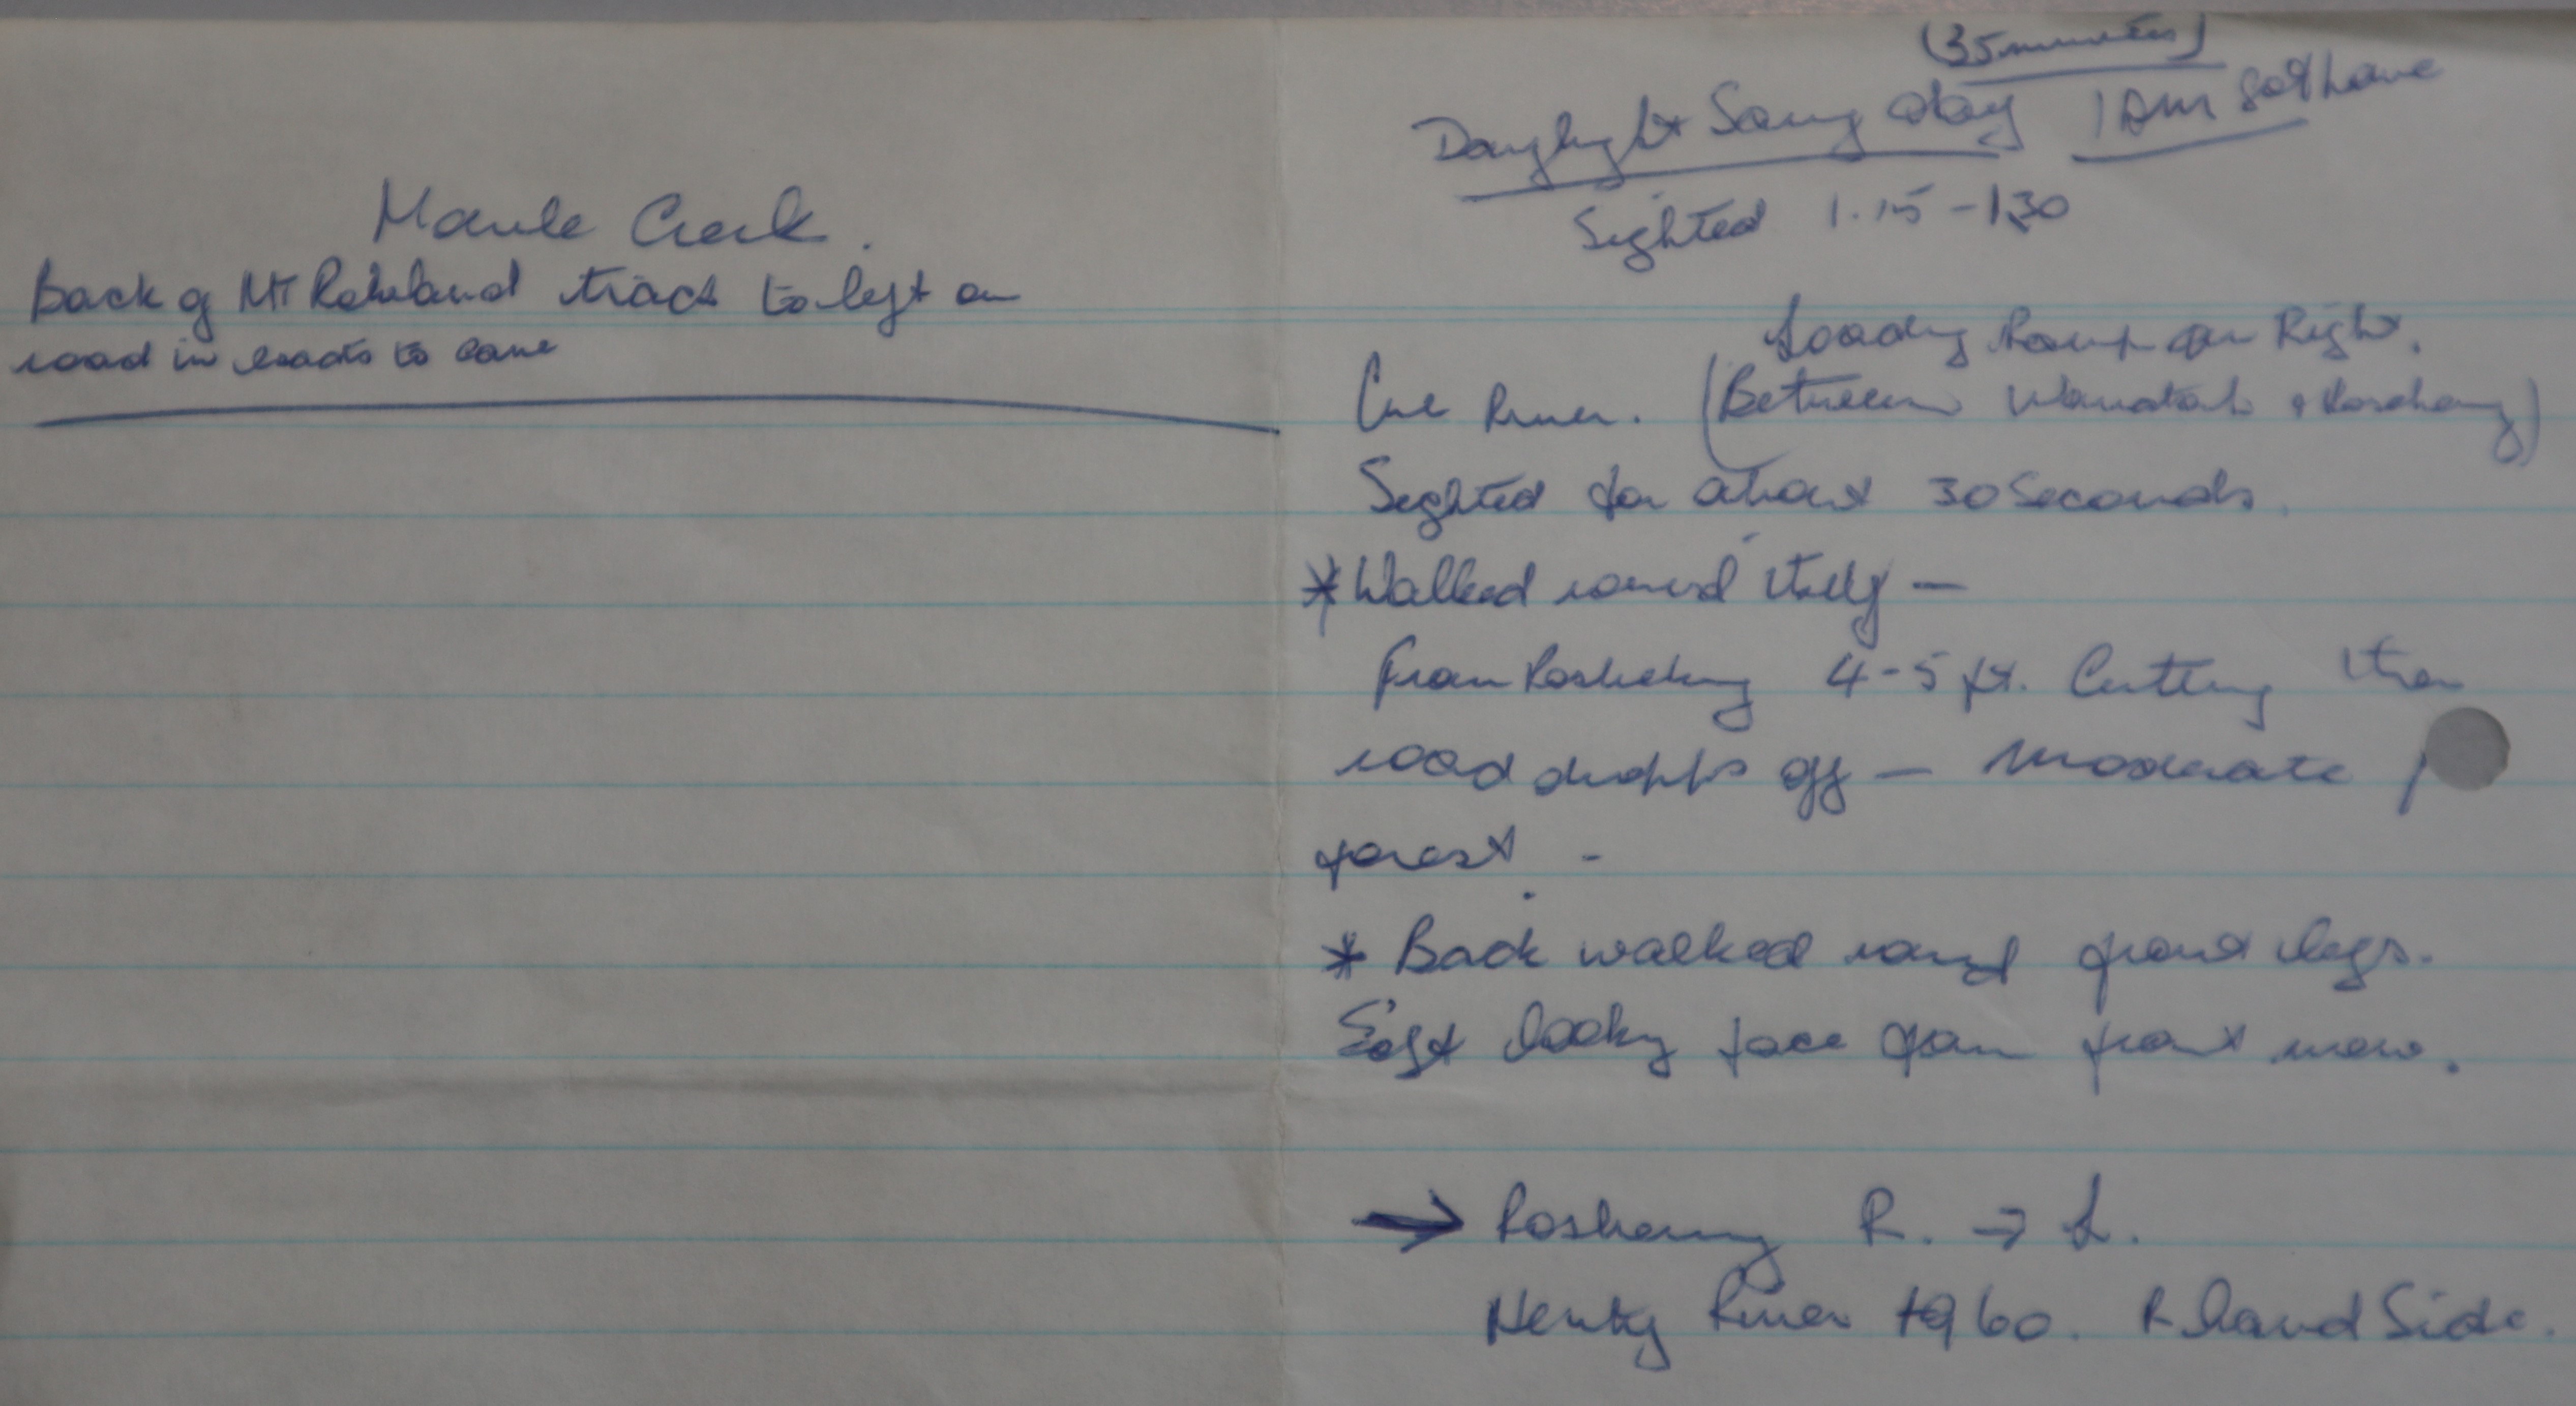 Maule Creek.
Back of Mt Roland track to left on
road in leads to cave
(35 minutes)
Daylight Saving day 1 AM got home
Sighted 1.15 - 1.30
Loading Ramp on Right.
River. (Between Waratah & Rosebery)
Sighted for about 30 Seconds.
* Walked round —
From Rosebery 4-5 ft. Cutting then
road drops off — moderate
forest -
* Back walked round front legs.
Soft looking face from front
→ Rosebery R. → L.
Henty River 1960. R hand Side.